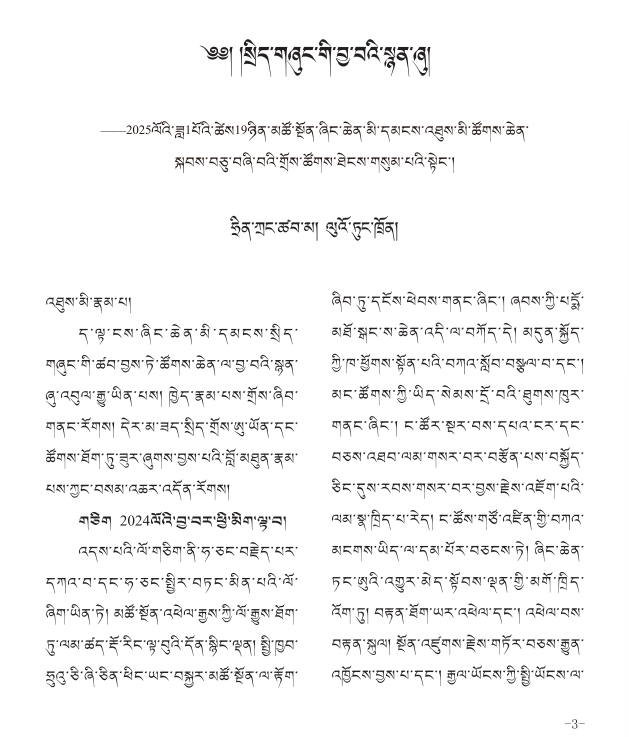 ༄༅། །སྲིད་གཞུང་གི་བྱ་བའི་སྙན་ཞུ།
——2025ལོའི་ཟླ1པོའི་ཚེས19ཉིན་མཚོ་སྔོན་ཞིང་ཆེན་མི་དམངས་འཐུས་མི་ཚོགས་ཆེན་
སྐབས་བཅུ་བཞི་བའི་གྲོས་ཚོགས་ཐེངས་གསུམ་པའི་སྟེང་།
ཧྲིན་ཀྲང་ཚབ་མ། ལུའོ་ཏུང་ཁྲོན།
འཐུས་མི་རྣམ་པ།
ད་ལྟ་ངས་ཞིང་ཆེན་མི་དམངས་སྲིད་
གཞུང་གི་ཚབ་བྱས་ཏེ་ཚོགས་ཆེན་ལ་བྱ་བའི་སྙན་
ཞུ་འབུལ་རྒྱུ་ཡིན་པས། ཁྱེད་རྣམ་པས་གྲོས་ཞིབ་
གནང་རོགས། དེར་མ་ཟད་སྲིད་གྲོས་ཨུ་ཡོན་དང་
ཚོགས་ཐོག་ཏུ་ཟུར་ཞུགས་བྱས་པའི་བློ་མཐུན་རྣམ་
པས་ཀྱང་བསམ་འཆར་འདོན་རོགས།
གཅིག 2024ལོའི་བྱ་བར་ཕྱི་མིག་ལྟ་བ།
འདས་པའི་ལོ་གཅིག་ནི་ཧ་ཅང་བརྗེད་པར་
དཀའ་བ་དང་ཧ་ཅང་སྤྱིར་བཏང་མིན་པའི་ལོ་
ཞིག་ཡིན་ཏེ། མཚོ་སྔོན་འཕེལ་རྒྱས་ཀྱི་ལོ་རྒྱུས་ཐོག་
ཏུ་ལམ་ཚད་རྡོ་རིང་ལྟ་བུའི་དོན་སྙིང་ལྡན། སྤྱི་ཁྱབ་
ཧྲུའུ་ཅི་ཞི་ཅིན་ཕིང་ཡང་བསྐྱར་མཚོ་སྔོན་ལ་རྟོག་
ཞིབ་ཏུ་དངོས་ཕེབས་གནང་ཞིང་། ཞབས་ཀྱི་པདྨོ་
མཐོ་སྒང་ས་ཆེན་འདི་ལ་བཀོད་དེ། མདུན་སྐྱོད་
ཀྱི་ཁ་ཕྱོགས་སྟོན་པའི་བཀའ་སློབ་བསྩལ་བ་དང་།
མང་ཚོགས་ཀྱི་ཡིད་སེམས་དྲོ་བའི་ཐུགས་ཁུར་
གནང་ཞིང་། ང་ཚོར་སྔར་བས་དཔའ་ངར་དང་
བཅས་འཐབ་ལམ་གསར་བར་བརྩོན་པས་བསྐྱོད་
ཅིང་དུས་རབས་གསར་བར་བྱས་རྗེས་འཇོག་པའི་
ལམ་སྣ་ཁྲིད་པ་རེད། ང་ཚོས་གཙོ་འཛིན་གྱི་བཀའ་
མངགས་ཡིད་ལ་དམ་པོར་བཅངས་ཏེ། ཞིང་ཆེན་
ཏང་ཨུའི་འགྱུར་མེད་སྟོབས་ལྡན་གྱི་མགོ་ཁྲིད་
འོག་ཏུ། བརྟན་ཐོག་ཡར་འཕེལ་དང་། འཕེལ་བས་
བརྟན་སྐུལ། སྔོན་འཛུགས་རྗེས་གཏོར་བཅས་རྒྱུན་
འཁྱོངས་བྱས་པ་དང་། རྒྱལ་ཡོངས་ཀྱི་སྤྱི་ཡོངས་ལ་
-3-